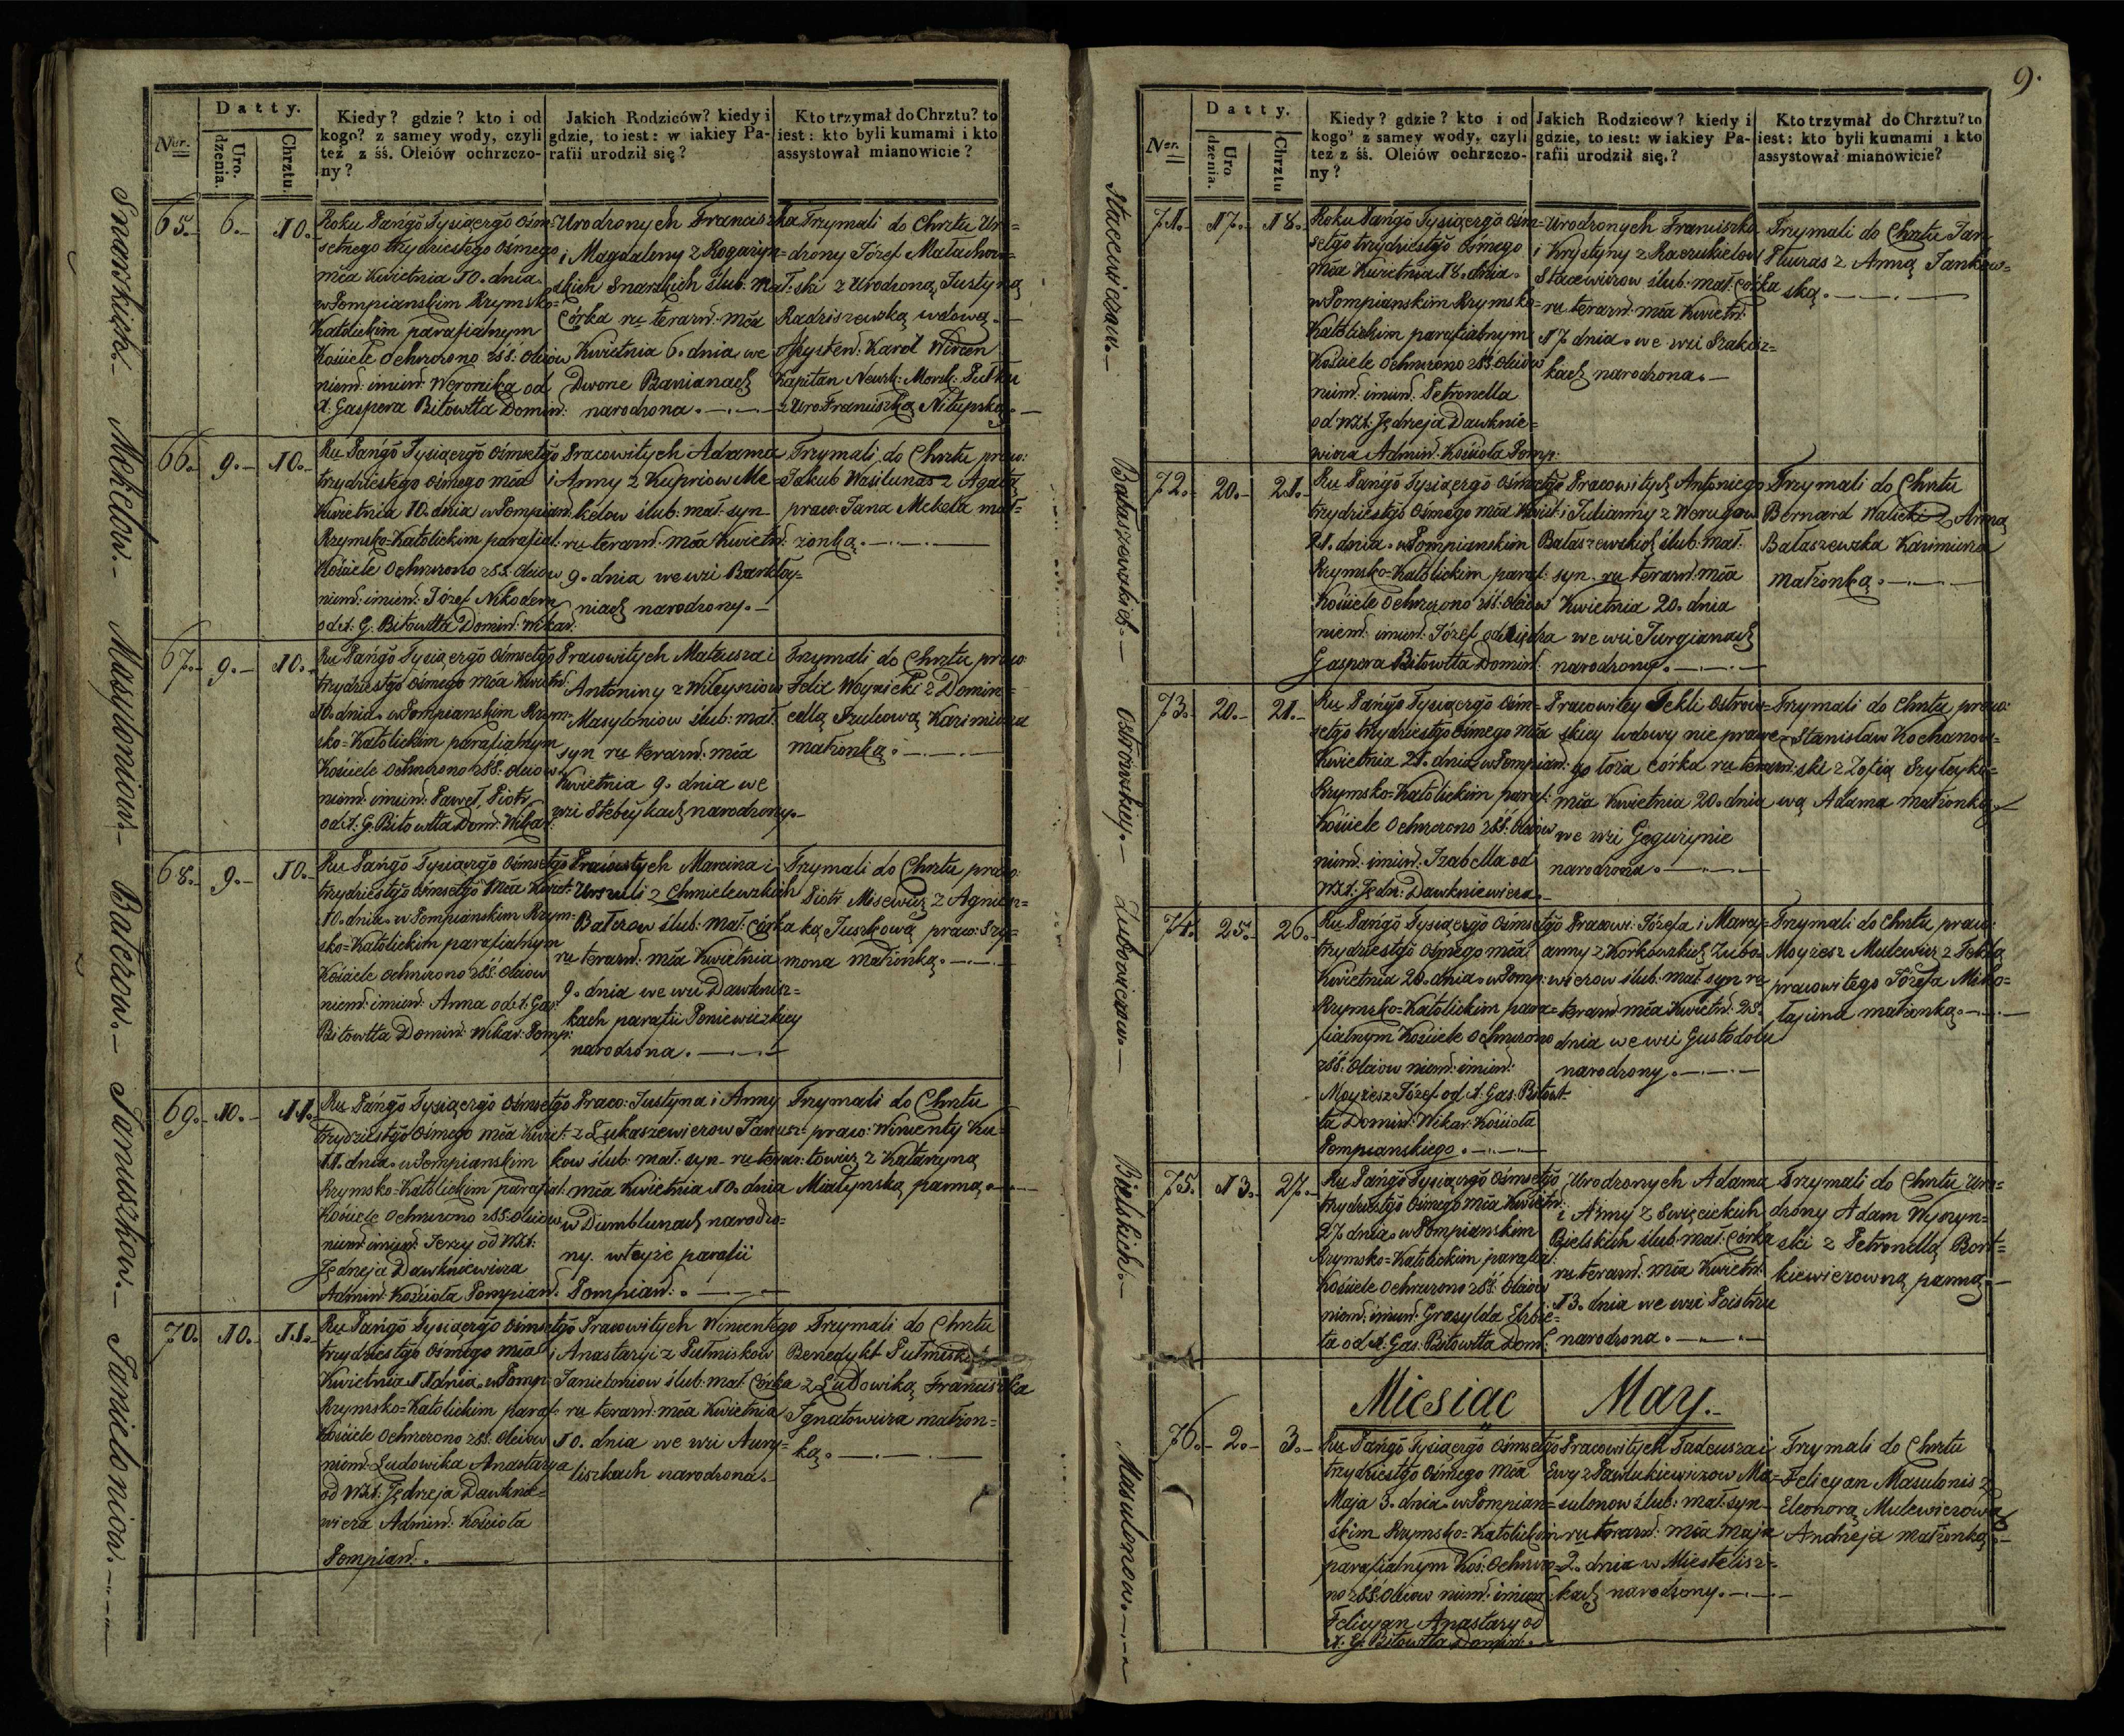 Nror.
Datty.
Urodzenia.
Chrztu.
Kiedy? gdzie? kto i od
kogo? z samey wody, czyli
też z śś. Oleiów ochrzczo-
ny?
Jakich Rodziców? kiedy i
gdzie, to iest: w iakiey Pa-
rafii urodził się?
Kto trzymał do Chrztu? to
iest: kto byli kumami i kto
assystował mianowicie?
Snarskich.
65. 6. 10.
Roku Pańgo Tysiącego Ośm-
setnego trzydziestego Osmego
mca Kwietnia 10. dnia.
w Pompianskim Rzymsko=
Katolickim parafialnym
Kościele Ochrzczono z śś. Oleiów
niem. imien. Weronika od
X. Gaspera Bitowtta Domin:
Urodzonych Franciszka
i Magdaleny z Rogażyn-
skich Snarskich ślub. mał.
Córka ru terazn. mca
Kwietnia 6. dnia we
Dworze Banianach
narodzona.
Trzymali do Chrztu Uro=
drony Józef Małachow=
ski z Urodzoną Justyną
Radziszewską wdową.
Assysten: Karol Wircen
Kapitan Newsk: Morsk: Pułku
z Uro Franciszką Nitupską.
Mekelow.
66. 9. 10.
Ru Pańgo Tysiącgo Ośmsetgo
trzydziestego ósmego mca
Kwietnia 10. dnia w Pompian.
Rzymsko=Katolickim parafial.
Kościele Ochrzczono z śś. Oleiow
niem. imien. Józef Nikodem
od X. G. Bitowtta Domin. wikar.
Pracowitych Adama
i Anny z Kupriow Me=
kelow ślub. mał. syn
ru terazn. mca Kwietn.
9. dnia we wsi Barkłoy=
niach narodzony.
Trzymali do Chrztu prac:
Jakub Wasilunas z Agatą
praco: Jana Mekela mał=
żonką.
Masyloniow.
67. 9. 10.
Ru Pańgo Tysiącgo Ośmsetgo
trzydziestgo Osmego mca Kwietn.
10. dnia w Pompianskim Rzym=
sko=Katolickim parafialnym
Kościele Ochrzczono z śś. Oleiow
niem. imien. Paweł, Piotr
od X. G. Bitowtta Dom. Wikar.
Pracowitych Mateusza i
Antoniny z Wileyszow
Masyloniow ślub. mał.
syn ru terazn. mca
Kwietnia 9. dnia we
wsi Stebeykach narodzony.
Trzymali do Chrztu praco
Felix Woynicki z Domin=
cellą Szulcową Kazimierza
małżonką.
Balcrow.
68. 9. 10.
Ru Pańgo Tysiącgo Ośmsetgo
trzydziestgo Osmsetgo Mca Kwiet.
10. dnia w Pompianskim Rzym-
sko=Katolickim parafialnym
Kościele Ochrzczono z śś. Oleiow
niem. imien. Anna od X. Gas:
Bitowtta Domin: Wikar. Pomp:
Pracowitych Marcina i
Urszuli z Chmielewskich
Balcrow ślub. mał. Córka
ru terazn. mca Kwietnia
9. dnia we wsi Dawknisz=
kach parafii Poniewiezkiey
narodzona.
Trzymali do Chrztu praco:
Piotr Misewicz z Agniesz=
ką Juszkową praco: Szy=
mona Małżonką.
Januszkow.
69. 10. 11.
Ru Pańgo Tysiącgo Ośmsetgo
trzydziestgo Osmego mca Kwiet.
11. dnia w Pompianskim
Rzymsko=Katolickim parafial.
Kościele Ochrzczono z śś. Oleiow
niem. imien. Jerzy od WX:
Jędrzeja Dawkniewicza
Admin: Kościoła Pompian.
Praco: Justyna i Anny
z Łukaszewiczow Janusz-
kow ślub. mał. syn ru teraz:
mca Kwietnia 10. dnia
w Dumblunach narodzo=
ny. w teyże parafii
Pompian:
Trzymali do Chrztu
praco: Wincenty Ku=
towicz z Katarzyną
Miałynską panną.
Janieloniow.
70. 10. 11.
Ru Pańgo Tysiącgo Ośmsetgo
trzydziestgo Ośmego mca
Kwietnia 11 dnia w Pomp:
Rzymsko=Katolickim paraf:
Kościele Ochrzczono z śś. Oleiow
niem. Ludowika Anastazya
od WX: Jędrzeja Dawknie=
wicza Admin: Kościoła
Pompian.
Pracowitych Wincentego
i Anastazyi z Pułmiskow
Janieloniow ślub. mał. Córka
ru terazn. mca Kwietnia
10. dnia we wsi Aury=
liszkach narodzona.
Trzymali do Chrztu
Benedykt Pułmiski
z Ludowiką Franciszka
Ignatowicza małżon=
ką.
9.
Nror.
Datty.
Urodzenia.
Chrztu
Kiedy? gdzie? kto i od
kogo? z samey wody, czyli
też z śś. Oleiów ochrzczo-
ny?
Jakich Rodziców? kiedy i
gdzie, to iest: w iakiey Pa-
rafii urodził się?
Kto trzymał do Chrztu? to
iest: kto byli kumami i kto
assystował mianowicie?
Stacewiczow.
71. 17. 18.
Roku Pańgo Tysiącgo Ośm=
setgo trzydziestgo Osmego
mca Kwietnia 18. dnia.
w Pompianskim Rzymsko=
Katolickim parafialnym
Kościele Ochrzczono z śś. Oleiow
niem. imien. Petronella
od WX: Jędrzeja Dawknie=
wicza Admin. Kościoła Pomp:
Urodzonych Franciszka
i Krystyny z Raczukielow
Stacewiczow ślub. mał. córka
ru terazn. mca Kwietn.
17 dnia. we wsi Szakisz=
kach narodzona.
Trzymali do Chrztu Jan
Pluras z Anną Jankow=
ską.
Bałaszewskich.
72. 20. 21.
Ru Pańgo Tysiącgo Ośmsetgo
trzydziestgo Osmego mca Kwiet:
21. dnia. w Pompianskim
Rzymsko=Katolickim paraf:
Kościele Ochrzczono z śś. Oleiow
niem. imien. Józef od Xiędza
Gaspera Bitowtta Domin:
Pracowitych Antoniego
i Julianny z Werugow
Bałaszewskich ślub. mał.
syn. ru terazn. mca
Kwietnia 20. dnia
we wsi Jurgianach
narodzony.
Trzymali do Chrztu
Bernard Walicki z Anną
Bałaszewska Kazimierza
małżonką.
Ostrowskiey.
73. 20. 21.
Ru Pańgo Tysiącgo Ośm=
setgo trzydziestgo Ośmego Mca
Kwietnia 21. dnia w Pompian:
Rzymsko=Katolickim paraf:
Kościele Ochrzczono z śś. Oleiow
niem. imien. Izabella od
WX: Jędrz: Dawkniewicza.
Pracowitey Tekli Ostrow=
skiey wdowy nie prawe=
go łoża córka ru terazn:
mca Kwietnia 20. dnia
we wsi Gegużynie
narodzona.
Trzymali do Chrztu praco:
Stanisław Kochanow=
ski z Zofią Szyleyko=
wą Adama małżonką.
Zubowiczow.
74. 25. 26.
Ru Pańgo Tysiącgo Ośmsetgo
trzydziestgo Osmego mca
Kwietnia 26. dnia. w Pomp:
Rzymsko=Katolickim para=
fialnym Kościele Ochrzczono
z śś. Oleiow niem. imien.
Moyżesz Józef od X. Gas. Bitowt=
ta Domin. Wikar. Kościoła
Pompianskiego.
Pracowi. Józefa i Mary=
anny z Korkowskich Zubo=
wiczow ślub. mał. syn ru
terazn mca Kwietn. 25.
dnia we wsi Gustodolu
narodzony.
Trzymali do Chrztu praco:
Moyżesz Mulewicz z Teklą
pracowitego Józefa Miko=
łajuna małżonką.
Bielskich.
75. 13. 27.
Ru Pańgo Tysiącgo Ośmsetgo
trzydziestgo Osmego Mca Kwietn:
27. dnia. w Pompianskim
Rzymsko=Katolickim parafial:
Kościele Ochrzczono z śś. Oleiow
niem. imien. Grasylda Elżbie=
ta od X. Gas. Bitowtta Dom:
Urodzonych Adama
i Anny z Swięcickich
Bielskich ślub. mał. Córka
ru terazn. mca Kwietn.
13. dnia we wsi Poistrzu
narodzona.
Trzymali do Chrztu Uro=
drony Adam Wyszyn=
ski z Petronellą Bort=
kiewiczowną panną.
Miesiąc May.
Masulonow.
76. 2. 3.
Ru Pańgo Tysiącgo Ośmsetgo
trzydziestgo Osmego Mca
Maja 3. dnia. w Pompian=
skim Rzymsko=Katolickim
parafialnym Koś: Ochrzczo=
no z śś. Oleiow niem. imien:
Felicyan Anastazy od
X. G. Bitowtta Domin.
Pracowitych Tadeusza i
Ewy z Pawlukiewiczow Ma=
sulonow ślub. mał. syn
ru terazn. mca Maja
2. dnia w Miestelisz=
kach narodzony.
Trzymali do Chrztu
Felicyan Masulonis z
Eleonorą Mulewiczową
Andrzeja małżonką.